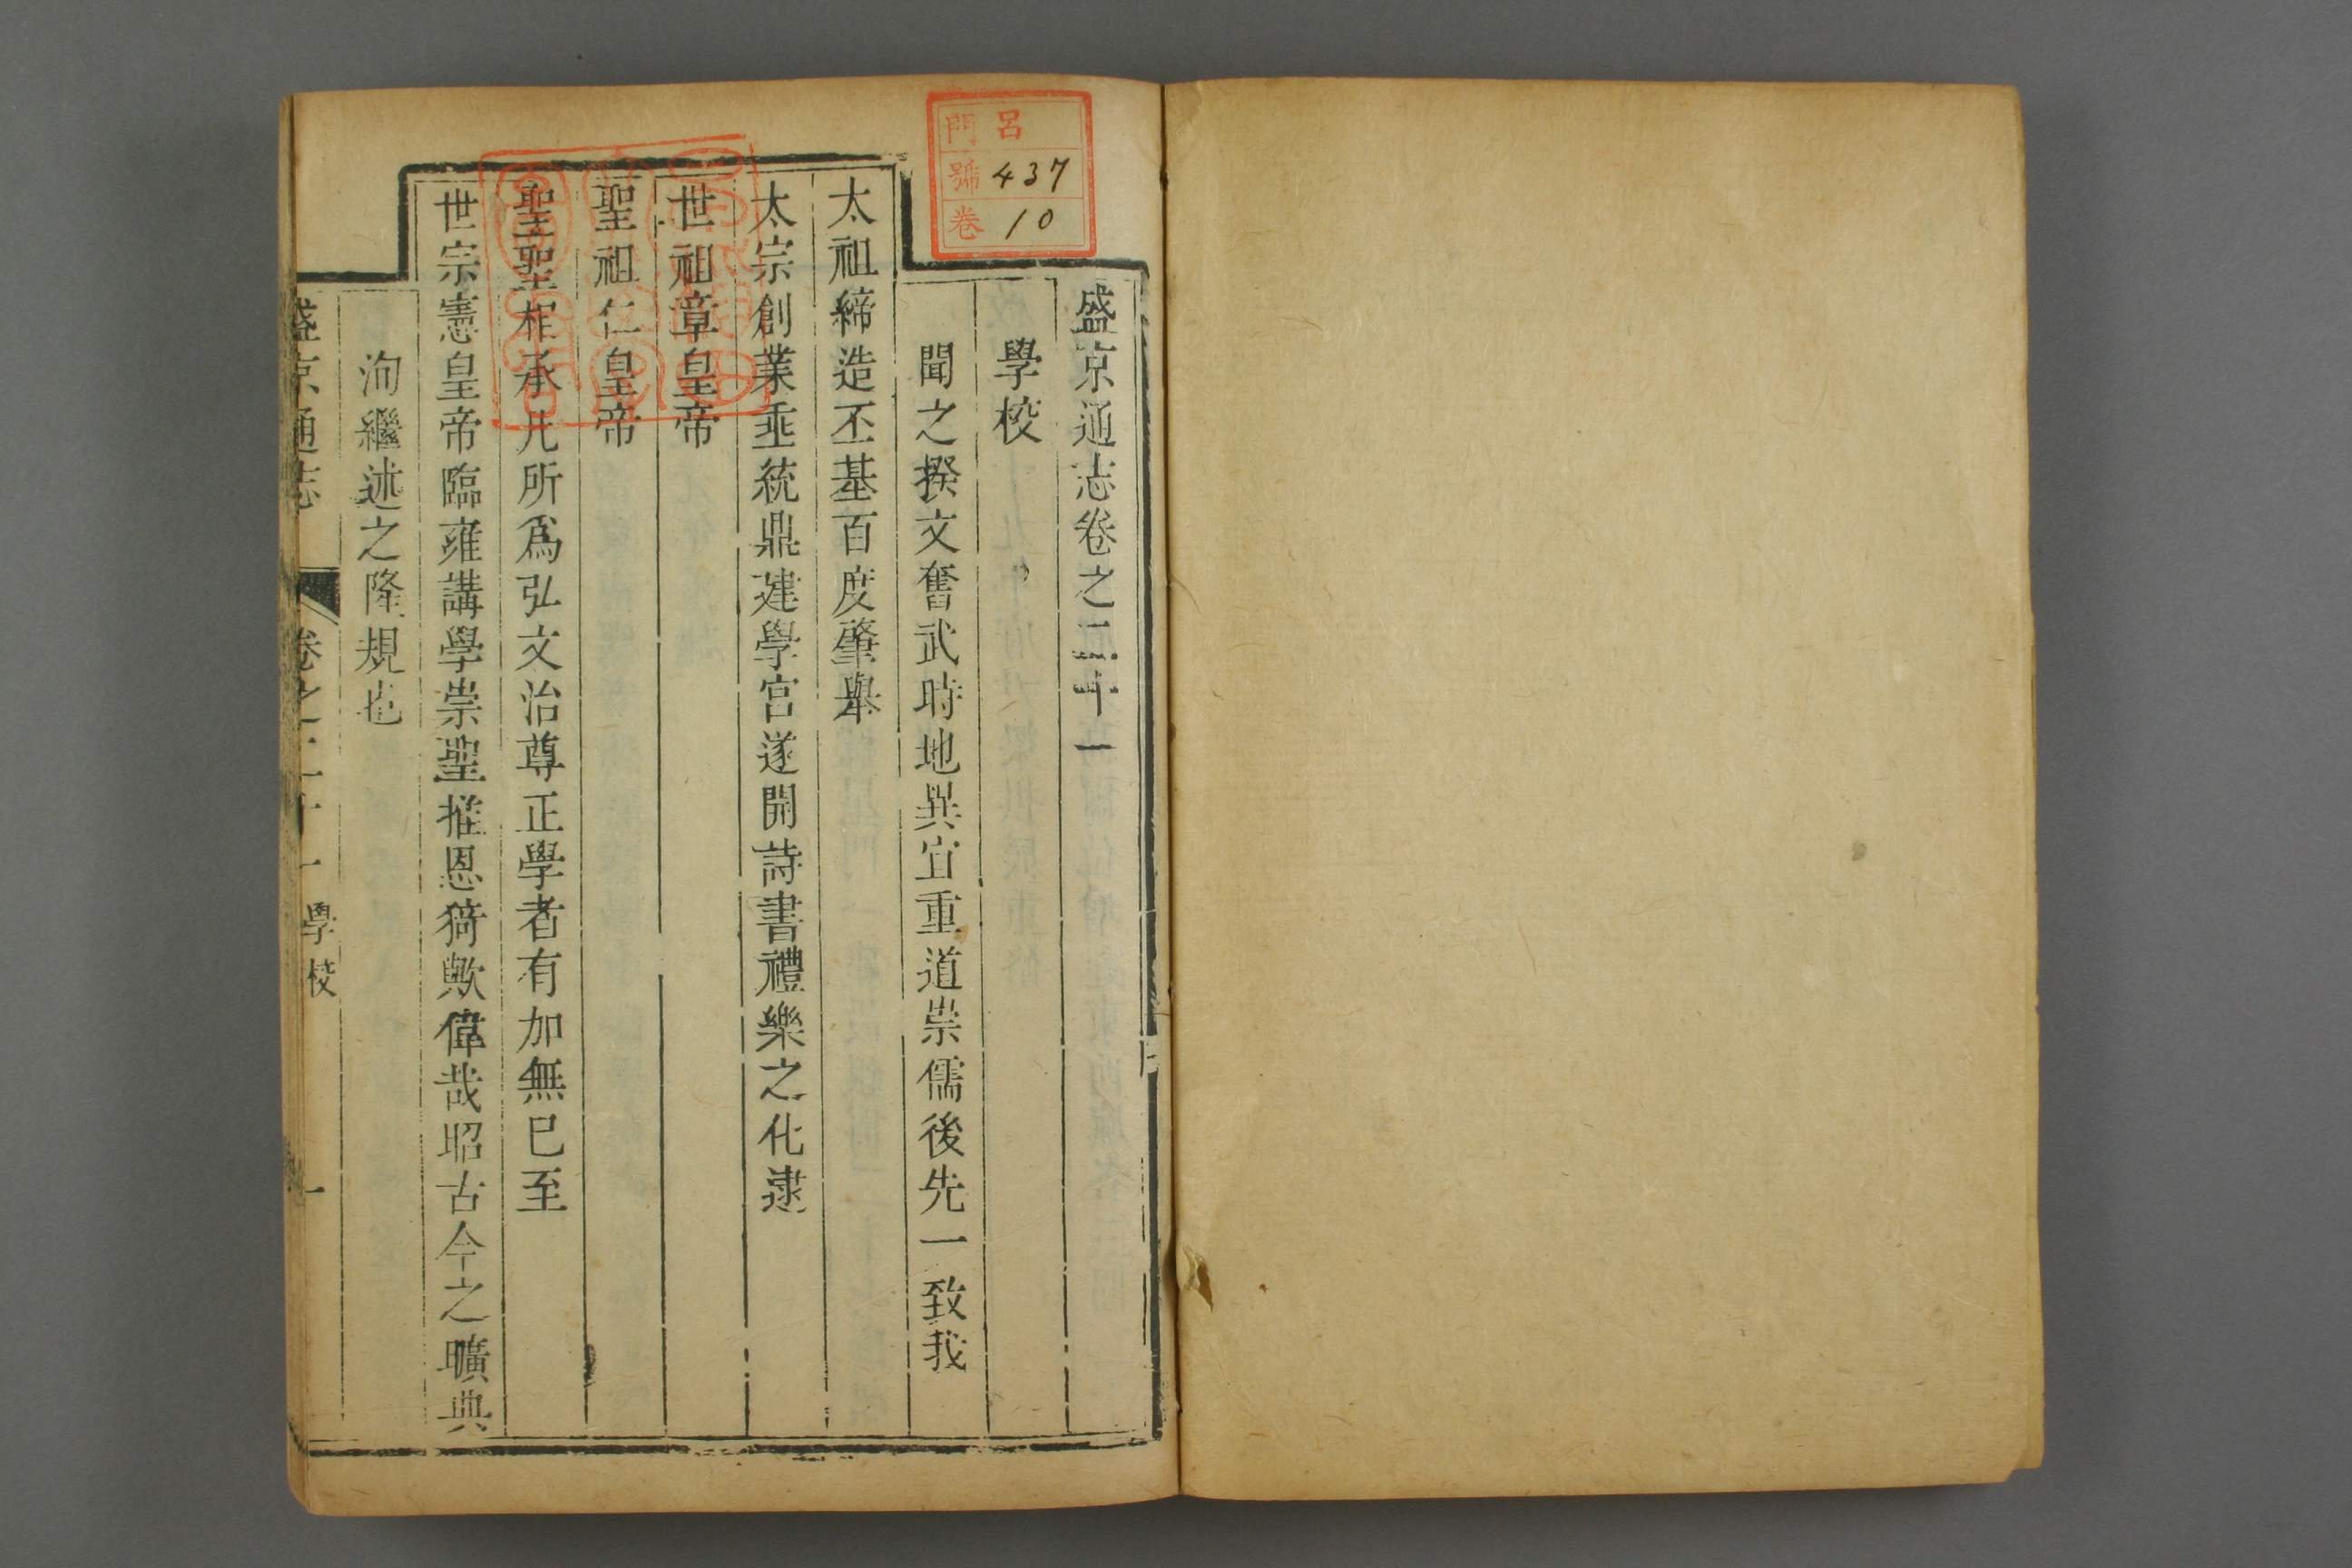 門 呂
號 437
卷 10
盛京通志卷之二十一
學校
聞之揆文奮武時地異宜重道崇儒後先一致我
太祖締造丕基百度肇舉
太宗創業垂統鼎建學宮遂開詩書禮樂之化逮
世祖章皇帝
聖祖仁皇帝
聖聖相承凡所爲弘文治尊正學者有加無已至
世宗憲皇帝臨雍講學崇聖推恩猗歟偉哉昭古今之曠典
洵繼述之隆規也
盛京通志 卷之二十一 學校 一